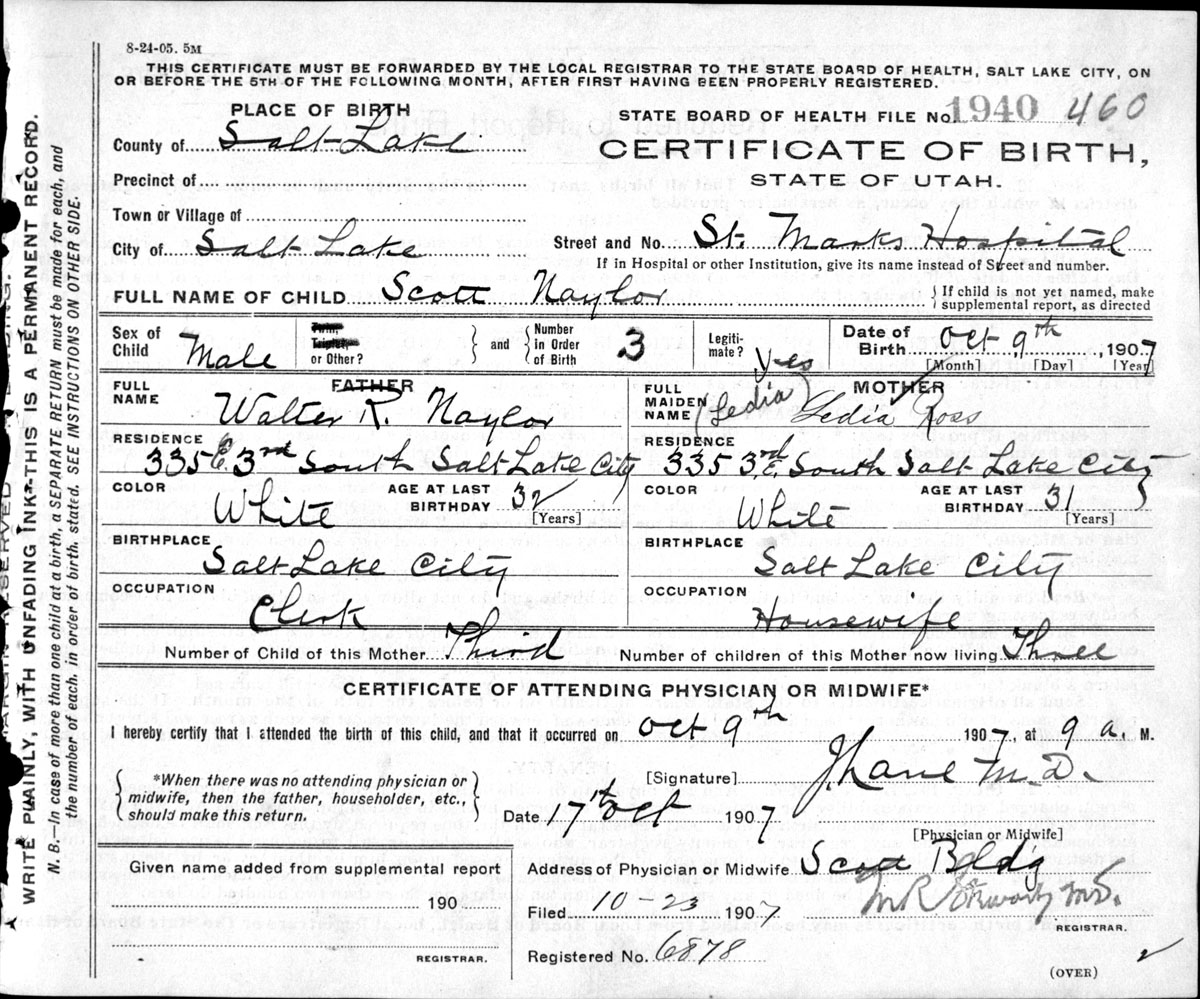 8-24-05. 5M
THIS CERTIFICATE MUST BE FORWARDED BY THE LOCAL REGISTRAR TO THE STATE BOARD OF HEALTH, SALT LAKE CITY, ON
OR BEFORE THE 5TH OF THE FOLLOWING MONTH, AFTER FIRST HAVING BEEN PROPERLY REGISTERED.
PLACE OF BIRTH
STATE BOARD OF HEALTH FILE No. 1940 460
County of Salt Lake
CERTIFICATE OF BIRTH,
Precinct of
STATE OF UTAH.
Town or Village of
City of Salt Lake
Street and No. St. Marks Hospital
If in Hospital or other Institution, give its name instead of Street and number.
FULL NAME OF CHILD Scott Naylor
{ If child is not yet named, make
supplemental report, as directed
Sex of Child Male
Twin, Triplet, or Other? } and { Number in Order of Birth 3
Legitimate? Yes
Date of Birth Oct 9th, 1907
[Month] [Day] [Year]
FATHER
FULL NAME Walter R. Naylor
MOTHER
FULL MAIDEN NAME (Ledia) Ledia Ross
RESIDENCE 335 E. 3rd South Salt Lake City
RESIDENCE 335 3rd E. South Salt Lake City
COLOR White
AGE AT LAST BIRTHDAY 32 [Years]
COLOR White
AGE AT LAST BIRTHDAY 31 [Years]
BIRTHPLACE Salt Lake City
BIRTHPLACE Salt Lake City
OCCUPATION Clerk
OCCUPATION Housewife
Number of Child of this Mother Third
Number of children of this Mother now living Three
CERTIFICATE OF ATTENDING PHYSICIAN OR MIDWIFE*
I hereby certify that I attended the birth of this child, and that it occurred on Oct 9th 1907, at 9 a. M.
{ *When there was no attending physician or
midwife, then the father, householder, etc.,
should make this return. }
[Signature] M.D.
Date 17th Oct 1907
[Physician or Midwife]
Give name added from supplemental report
190
REGISTRAR.
Address of Physician or Midwife Scott Bldg
Filed 10-23 1907
M.D.
REGISTRAR.
Registered No. 6878
(OVER)
WRITE PLAINLY, WITH UNFADING INK—THIS IS A PERMANENT RECORD.
N. B.—In case of more than one child at a birth, a SEPARATE RETURN must be made for each, and
the number of each, in order of birth, stated. SEE INSTRUCTIONS ON OTHER SIDE.